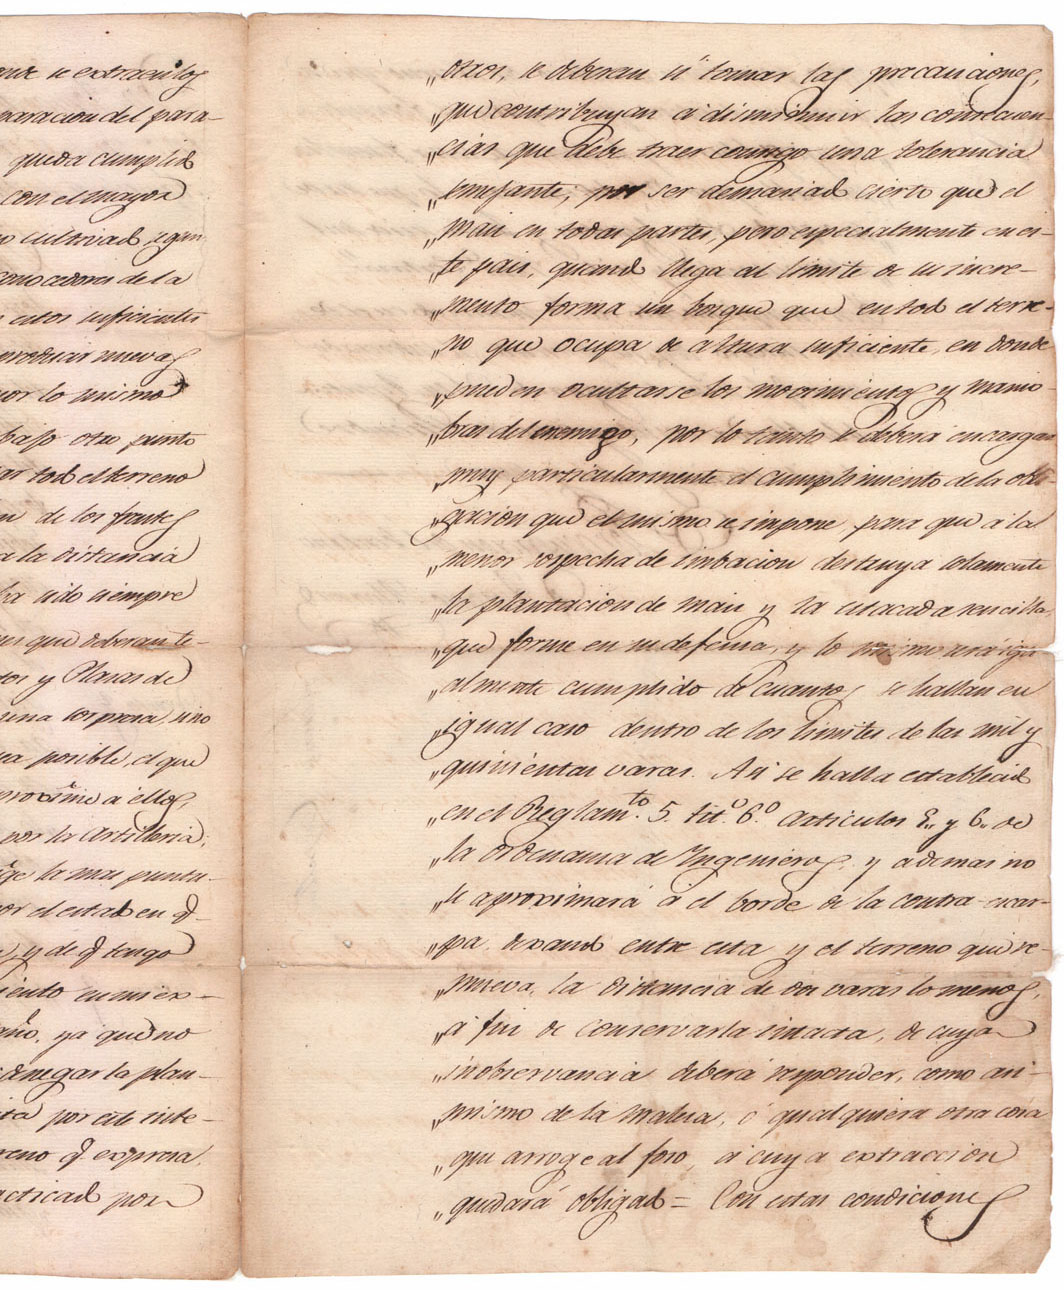 se extraen los
paracion del para-
queda cumplido
con el mayor
cultivado segun
conocedores de la
estos suficientes
producir nuevas
por lo mismo
bajo otro punto
todo el terreno
de los frentes
a la distancia
ha sido siempre
que deberan te-
tos y Plazas de
una sorpresa sino
posible, el que
aproxime a ellos,
por la Artilleria,
la mas puntu-
por el estado en q.
y de q. tengo
en mi ex-
ya que no
la plan-
por este inte-
reno q. expresa,
acticado por
„otros, se deberan si tomar las precauciones,
„que contribuyan a disminuir las consecuen-
„cias que debe traer consigo una tolerancia
„semejante, por ser demasiado cierto que el
„mais en todas partes, pero especialmente en es-
„te pais, quando llega al limite de su incre-
„mento forma un bosque que en todo el terre-
„no que ocupa de altura suficiente, en donde
„pueden ocultarse los movimientos y manio-
„bras del enemigo, por lo tanto se deberá encargar
„muy particularmente el cumplimiento de la obli-
„gacion que el mismo se impone para que a la
„menor sospecha de imbacion destruya solamente
„la plantacion de mais y la estacada sencilla,
„que forme en su defensa, y lo mismo será igu-
„almente cumplido de cuantos se hallan en
„igual caso dentro de los limites de las mil y
„quinientas varas. Asi se halla establecido
„en el Reglam.to 5. tit.o 6.o articulos 5,, y 6,, de
„la ordenanza de Ingenieros, y ademas no
„se aproximará á el borde de la contra-escar-
„pa dexando entre esta y el terreno que re-
„mueva, la distancia de dos varas lo menos,
„a fin de conservarla intacta, de cuya
„inobservancia deberá responder, como asi-
„mismo de la maleza, ó qualquiera otra cosa
„que arroge al foso, a cuya extraccion
„quedará obligado = Con estas condiciones